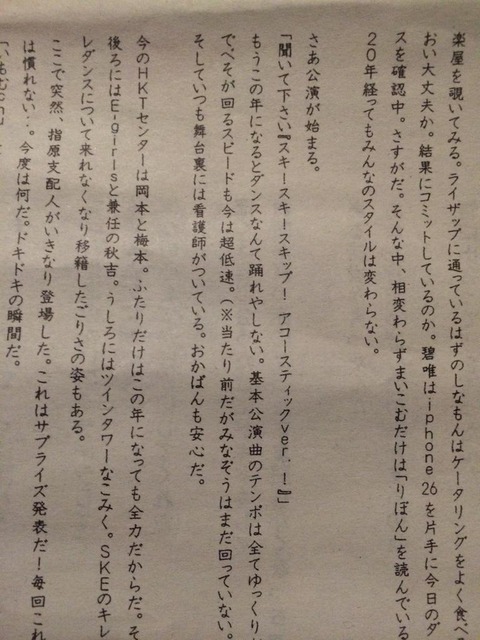 楽屋を覗いてみる。ライザップに通っているはずのしなもんはケータリングをよく食べ
おい大丈夫か。結果にコミットしているのか。碧唯はiphone26を片手に今日のダ
スを確認中。さすがだ。そんな中、相変わらずまいこむだけは「りぼん」を読んでいる
20年経ってもみんなのスタイルは変わらない。
さあ公演が始まる。
「聞いて下さい『スキ!スキ!スキップ! アコースティックver.!』」
もうこの年になるとダンスなんて踊れやしない。基本公演曲のテンポは全てゆっくり
でへそが回るスピードも今は超低速。(※当たり前だがみなぞうはまだ回っていない。
そしていつも舞台裏には看護師がついている。おかぱんも安心だ。
今のHKTセンターは岡本と梅本。ふたりだけはこの年になっても全力だからだ。そ
後ろにはE-girlsと兼任の秋吉。うしろにはツインタワーなこみく。SKEのキレ
レダンスについて来れなくなり移籍したごりさの姿もある。
ここで突然、指原支配人がいきなり登場した。これはサプライズ発表だ!毎回これ
は慣れない…。今度は何だ。ドキドキの瞬間だ。